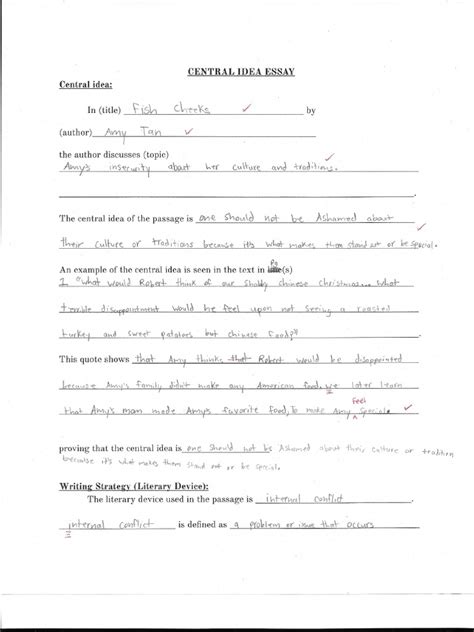 CENTRAL IDEA ESSAY
Central idea:
In (title) Fish Cheeks ✓ by
(author) Amy Tan ✓
the author discusses (topic) ✓
Amy's insecurity about her culture and traditions.
The central idea of the passage is one should not be Ashamed about
their culture or traditions because it's what makes them stand out or be special.
An example of the central idea is seen in the text in Pg(s)
1 "what would Robert think of our Shabby chinese christmas... what
terrible disappointment would he feel upon not seeing a roasted
turkey and sweet potatoes but chinese food?"
This quote shows that Amy thinks that Robert would be disappointed
because Amy's family didn't make any American food. we later learn
feel
that Amy's mom made Amy's favorite food, to make Amy special. ✓
proving that the central idea is one should not be Ashamed about their culture or tradition
because it's what makes them stand out or be special.
Writing Strategy (Literary Device):
The literary device used in the passage is internal conflict.
internal conflict is defined as a problem or issue that occurs